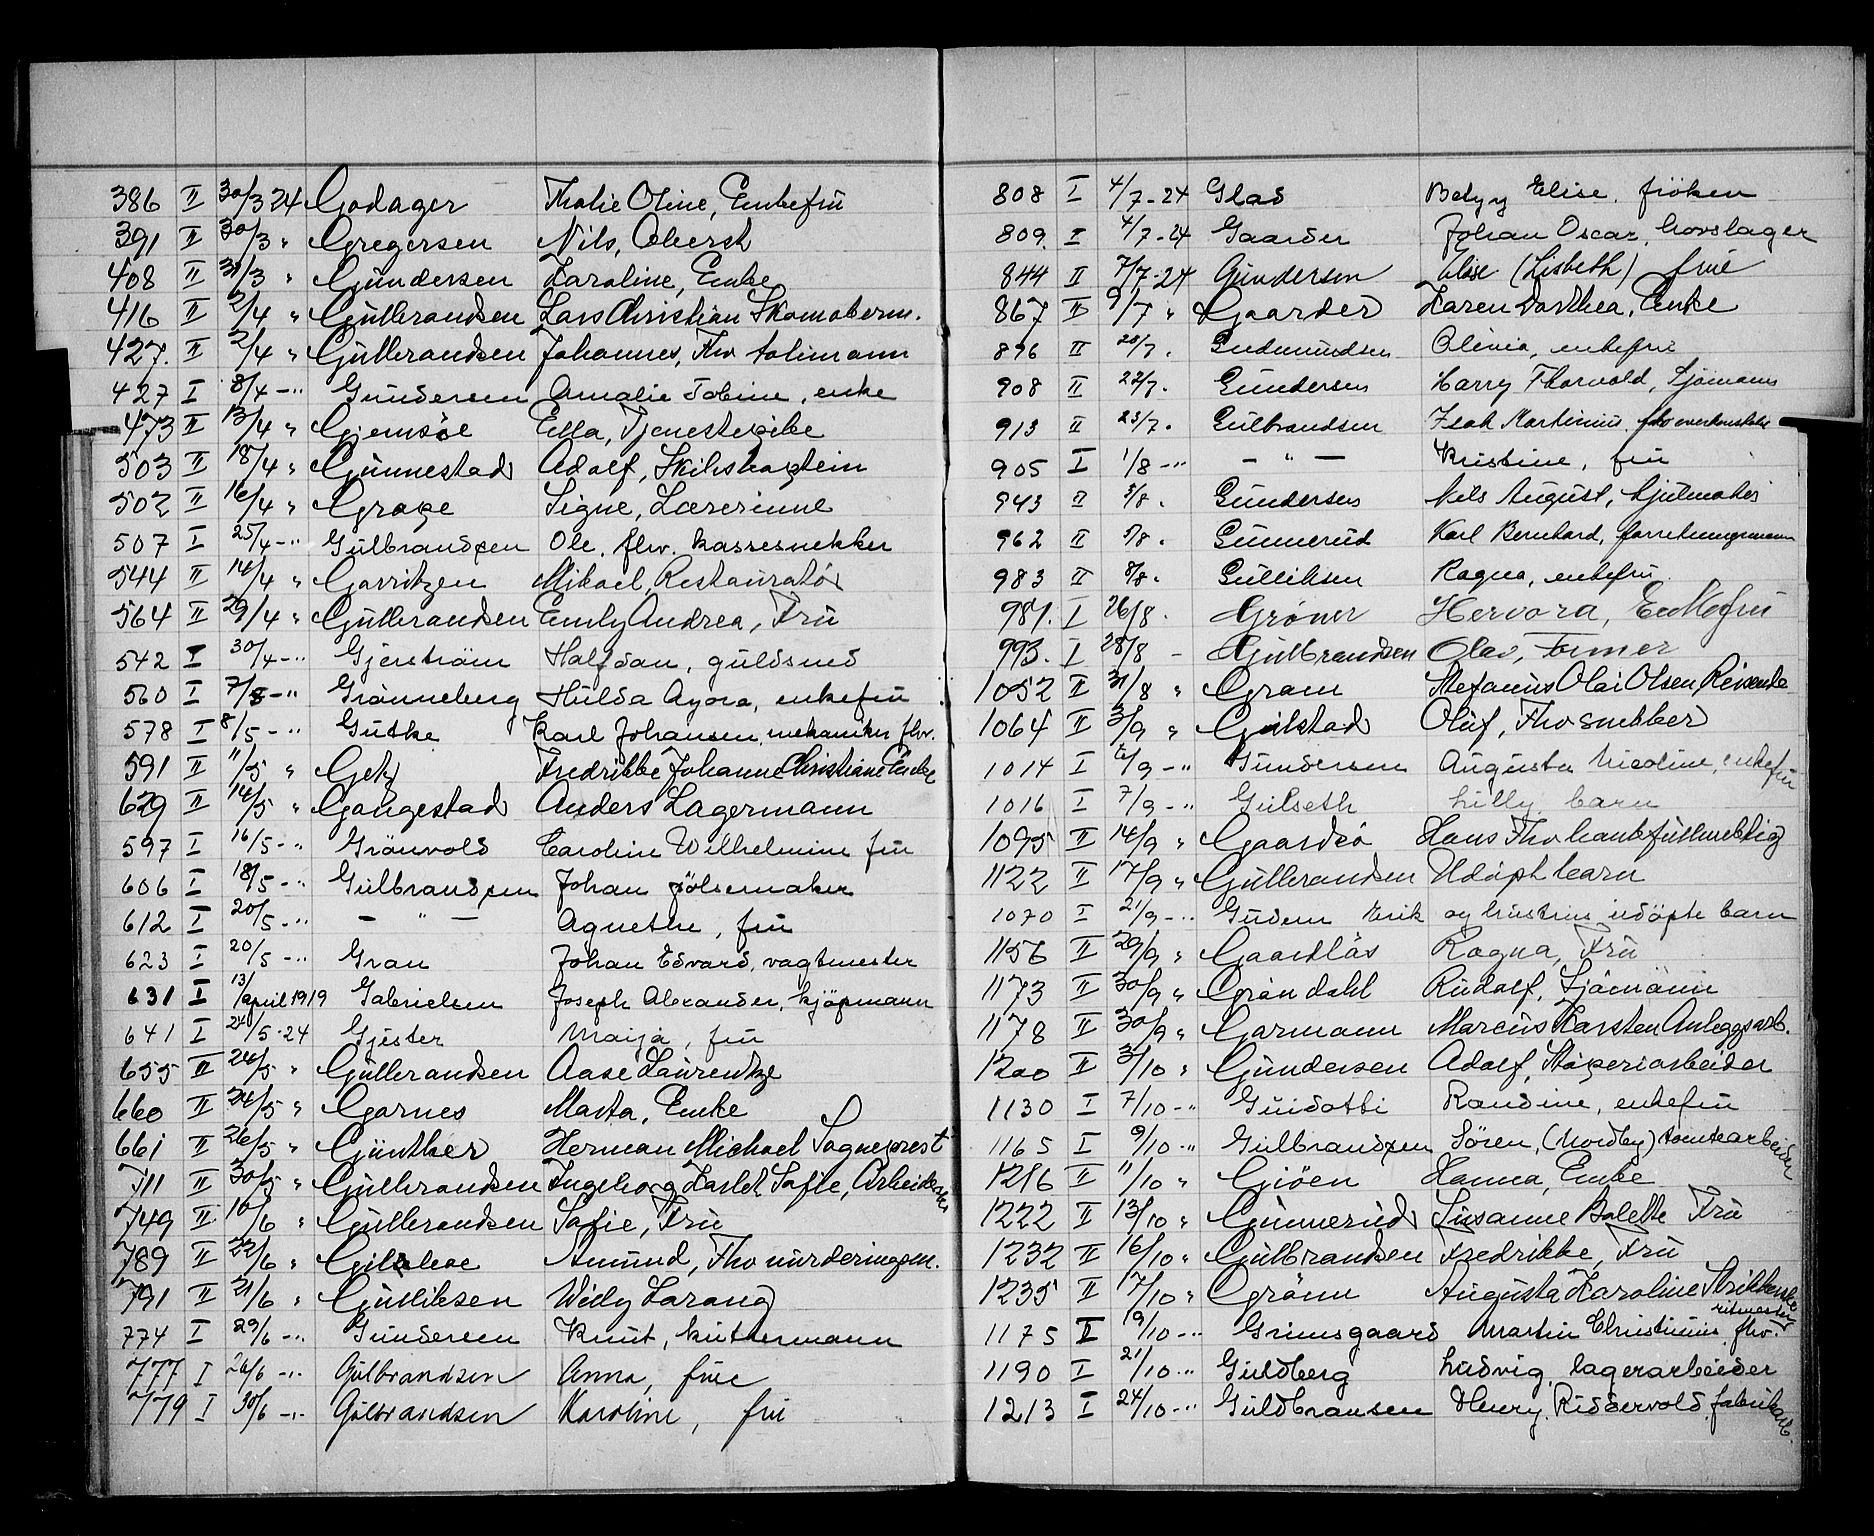 386 II 30/3 24 Godager Thalie Oline, Enkefrü
391 II 30/3 " Gregersen Nils, Oberst
408 II 31/3 " Gündersen Karoline, Enke
416 II 2/4 " Gülbrandsen Lars Christian Skomakerm.
427. II 2/4 " Gülbrandsen Johannes, Fhv tolimann
427 I 8/4 -" Gündersen Amalie Tobine, enke
473 II 13/4 " Gjemsöe Ella, Tjenestepike
503 II 18/4 " Günnestad Adolf, Skibskaptein
502 II 16/4 " Grape Signe, Lærerinne
507 I 25/4 -" Gülbrandsen Ole, fhv. kassesnekker
544 II 14/4 " Garritzen Mikael, Restauratör
564 II 29/4 " Gülbrandsen Emly Andrea, Frü
542 I 30/4 -" Gjerström Halfdan, güldsmed
560 I 7/5 -" Grönneberg Hülda Agora, enkefrü
578 I 8/5 -" Gütke Karl Johansen, mekaniker fhv.
591 II 11/5 " Getz Fredrikke Johanne Christiane Enke
629 II 14/5 " Gaugestad Anders Lagermann
597 I 16/5 -" Grönvold Caroline Wilhelmine frü
606 I 18/5 -" Gülbrandsen Johan pölsemaker
612 I 20/5 -" - " - Agnethe, frü
623 I 20/5 -" Gran Johan Edvard, vagtmester
631 I 13/april 1919 Gabrielsen Joseph Alexander, kjöpmann
641 I 24/5-24 Gjester Maija, frü
655 II 24/5 " Gülbrandsen Aase Laürentze
660 II 24/5 " Garnes Marta, Enke
661 II 26/5 " Günther Herman Michael Sogneprest
711 II 30/5 " Gülbrandsen Ingeborg Sofie, Arbeiderske
749 II 10/6 " Gülbrandsen Sofie, Frü
789 II 22/6 " Amünd, Fhv vürderingsm.
791 II 21/6 " Gülliksen Willy Larang
774 I 29/6 -" Gündersen Knut, küttermann
777 I 26/6 -" Gülbrandsen Anna, frue
779 I 30/6 -" Gülbrandsen Karoline, frü
808 I 4/7-24 Glad Betzy Elise, fröken
809 I 4/7-24 Gaarder Johan Oscar, hovslager
844 II 7/7-24 Gündersen Elise (Lisbeth) frue
867 II 9/7 " Gaarder Karen Dorthea, Enke
896 II 20/7. Gudmündsen Olivia, enkefrü
908 II 22/7. Gündersen Harry Thorvald, Sjömann
913 II 23/7. Gülbrandsen Isak Martinius, fhv overkonstabel
905 I 1/8 -" - " - Kristine, frü
943 II 3/8. Gündersen Nils August, hjülmaker
962 II 5/8. Günnerüd Karl Bernhard, forretningsmann
983 II 8/8. Gülliksen Ragna, enkefrü.
987. I 26/8. Gröner Hervora, Enkefrü
993. I 28/8 - Gülbrandsen Olav, Former
1052 II 31/8 " Gram Stefanius Olai Olsen, Reisende
1064 II 3/9 " Gülstad Olüf, Fhv snekker
1014 I 6/9 -" Gündersen Augusta Nicoline, enkefrü
1016 I 7/9 -" Gülseth Lilly, barn
1095 II 14/9 " Gaardsö Hans Fhv bankfüllmektig
1122 II 17/9 " Gülbrandsen Udöpt barn
1070 I 21/9 -" Güdem Erik og Kristine üdöpte barn
1156 II 29/9 " Gaardlös Ragna, Frü
1173 II 30/9 " Gröndahl Rüdolf, Sjömann
1178 II 30/9 " Garmann Marcüs Karsten Anleggsarb.
1200 II 3/10 " Gündersen Adolf, Stöperiarbeider
1130 I 7/10 -" Güidotti Randine, enkefrü
1165 I 9/10 -" Gülbrandsen Sören, (Nordby) tomtearbeider
1216 II 11/10 " Giöen Hanna, Enke
1222 II 13/10 " Günnerüd Susanne Bolette Frü
1232 II 16/10 " Gülbrandsen Fredrikke, Frü
1235 II 17/10 " Grönn Augusta Karoline Strikkerske
1175 I 19/10 -" Grimsgaard Martin Christinius, fhv. ritmester
1190 I 21/10 -" Güldberg Ludvig, lagerarbeider
1213 I 24/10 -" Güldbransen Henry Riddervold, fabrikarb.